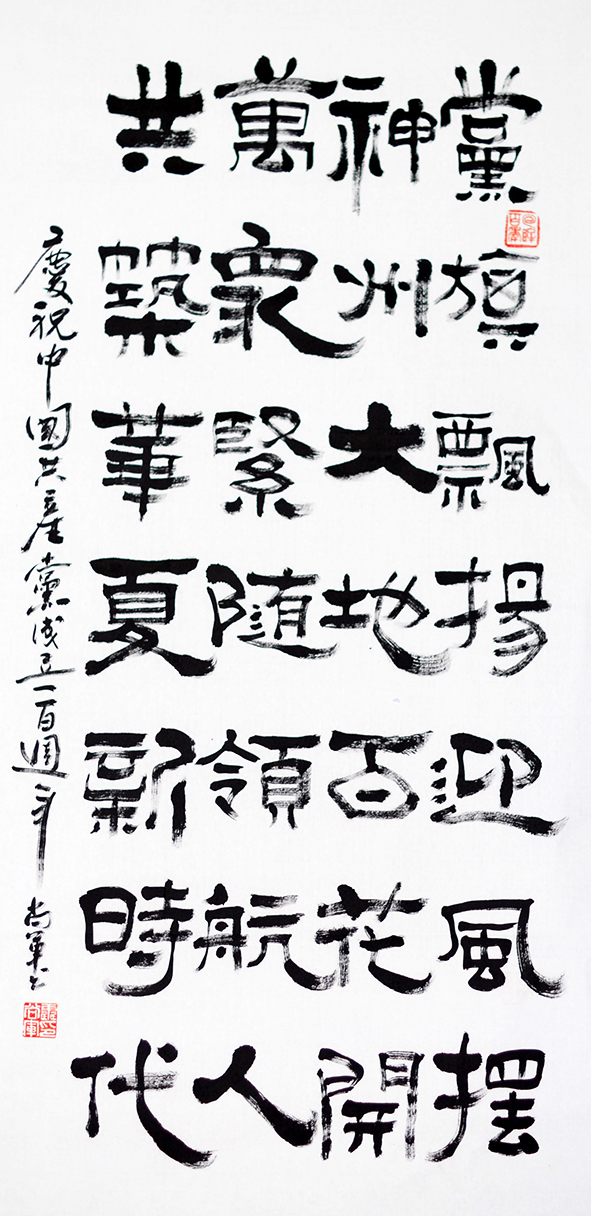 黨旗飄揚迎風擺
神州大地百花開
萬衆緊隨領航人
共築華夏新時代
慶祝中國共產黨成立一百週年 尚軍書